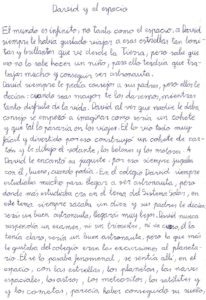 David y el espacio
El mundo es infinito, no tanto como el espacio, a David
siempre le había gustado viajar a esas estrellas tan boni-
tas y brillantes que ve desde la Tierra, pero sabe que
no lo sabe hacer un niño, para ello tendría que tra-
bajar mucho y conseguir ser astronauta.
David siempre le pedía consejo a sus padres, pero ellos le
decían: cuando seas mayor te los daremos, mientras
tanto disfruta de la vida. David al ver que nadie le daba
consejo se empezó a imaginar como sería un cohete
y que tal lo pasaría en los viajes. Él lo veía todo muy
fácil y divertido porque construyó un cohete de car-
tón y le dibujó el volante, los botones y los motores. A
David le encantó su juguete, por eso siempre jugaba
con él, bueno, cuando podía. En el colegio David siempre
estudiaba mucho para llegar a ser astronauta, pero
donde más estudiaba era en el tema del Sistema Solar, en
este tema siempre sacaba un diez y sus padres le decían
serás un buen astronauta, llegarás muy lejos. David nunca
suspendía un examen, ni un trimestre, ni un curso, él lo
tenía claro, sería un buen astronauta, pero lo que más
le gustaba del colegio eran las excursiones al planeta-
rio. Él se lo pasaba fenomenal, se sentía allí, en el
espacio, con las estrellas, los planetas, las naves
espaciales, los astros, los meteoritos, los satélites y
y los cometas, parecía haber conseguido su sueño,